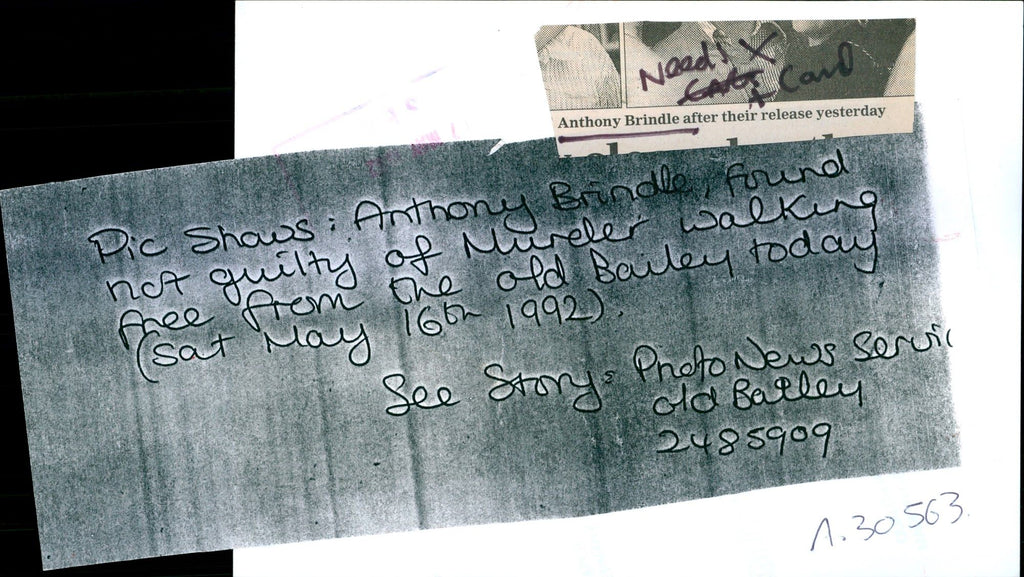 Need! X
A Card
Anthony Brindle after their release yesterday
Pic Shows: Anthony Brindle, found
not guilty of Murder walking
free from the old Bailey today
(Sat May 16th 1992).
See Story: Photo News Servic
old Bailey
2485909
A.30563.